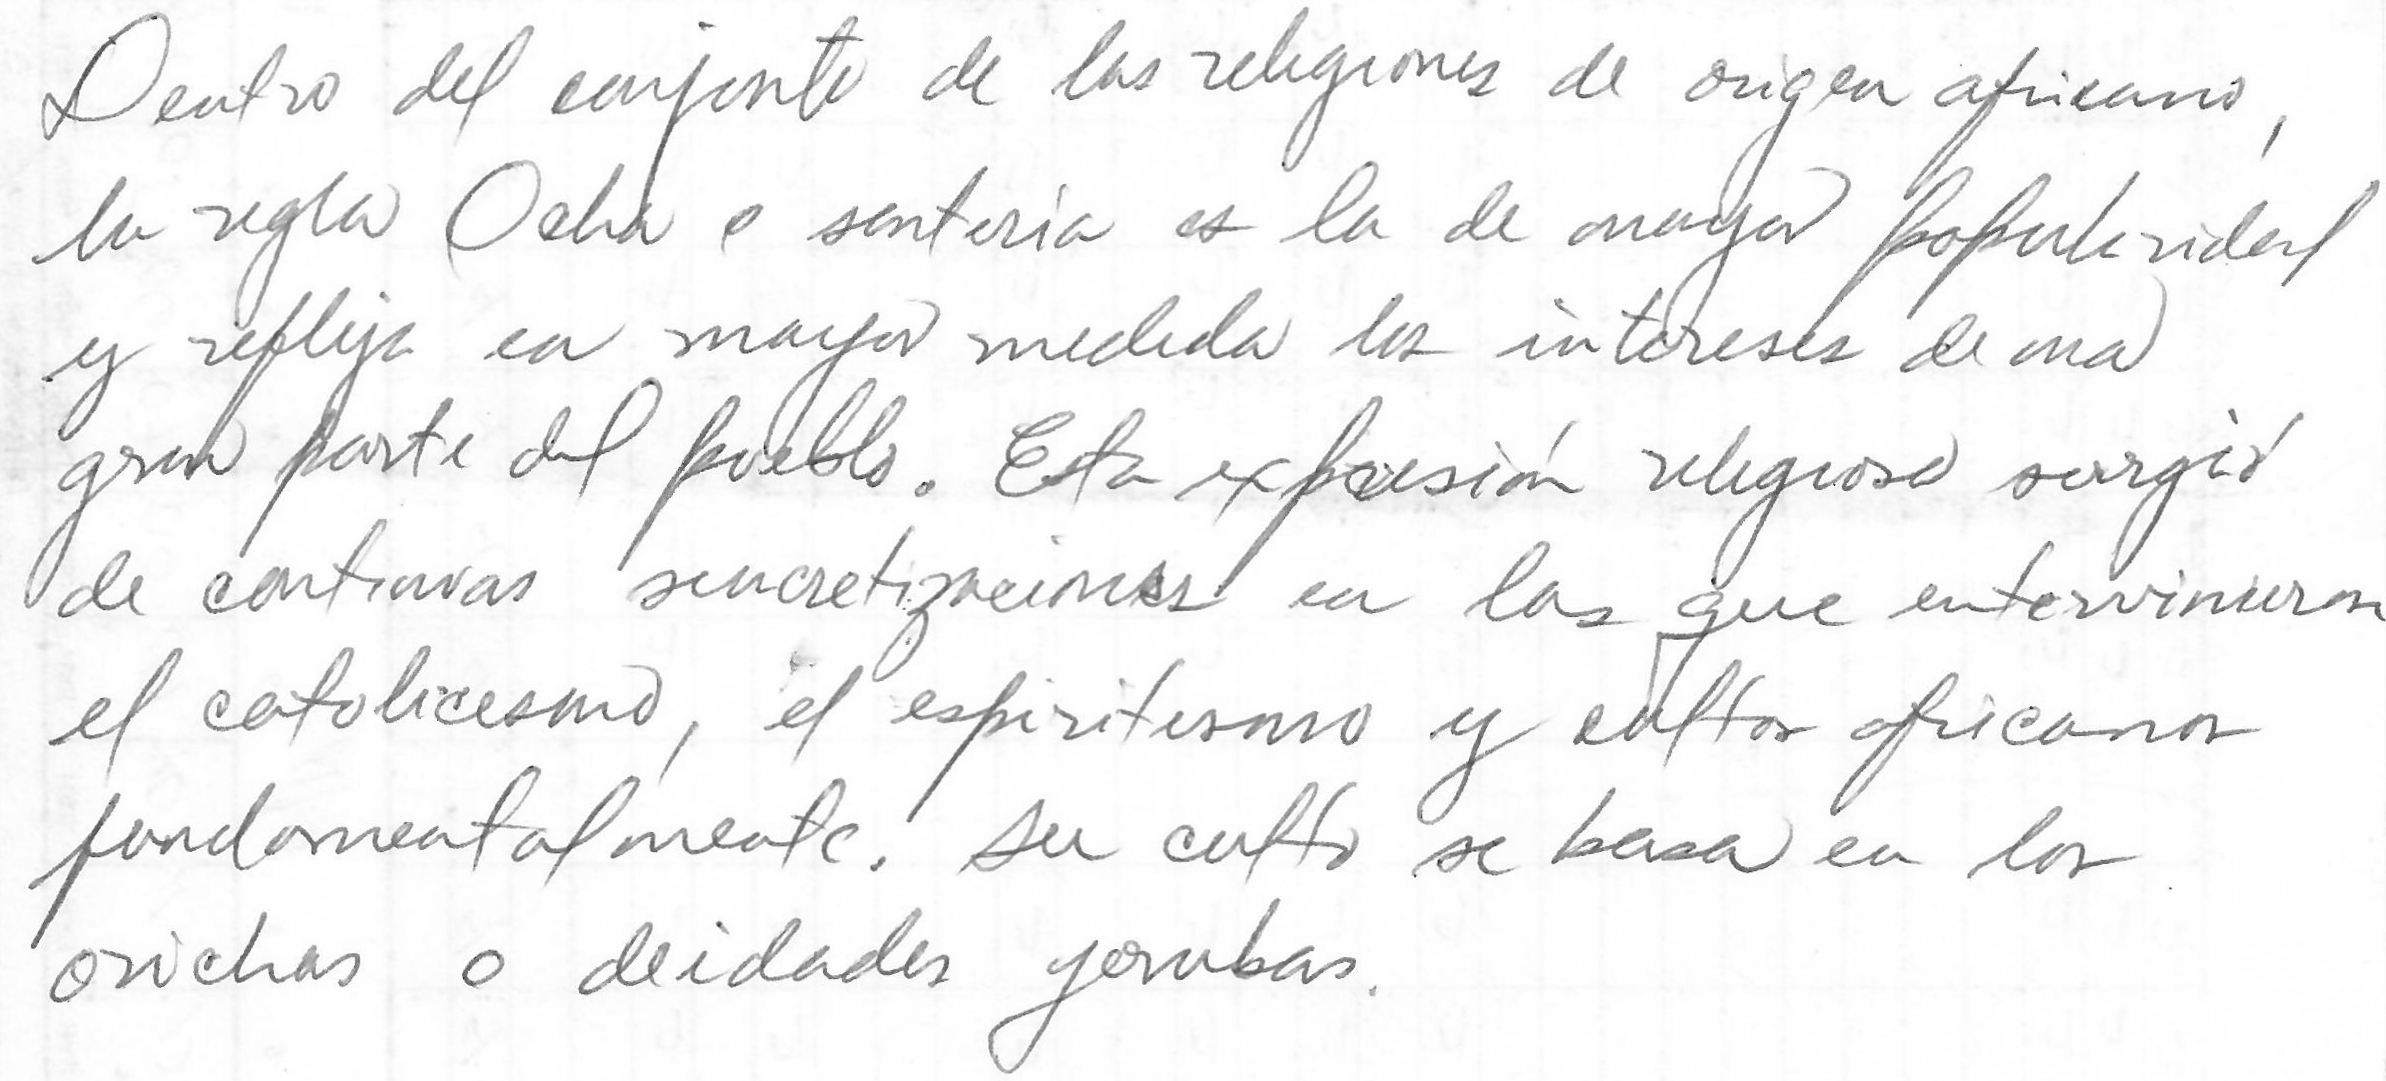 Dentro del conjunto de las religiones de origen africano,
la regla Ocha o santería es la de mayor popularidad
y refleja en mayor medida los intereses de una
gran parte del pueblo. Esta expresión religiosa surgió
de continuas sincretizaciones en las que intervinieron
el catolicismo, el espiritismo y cultos africanos
fundamentalmente. Su culto se basa en los
orichas o deidades yorubas.